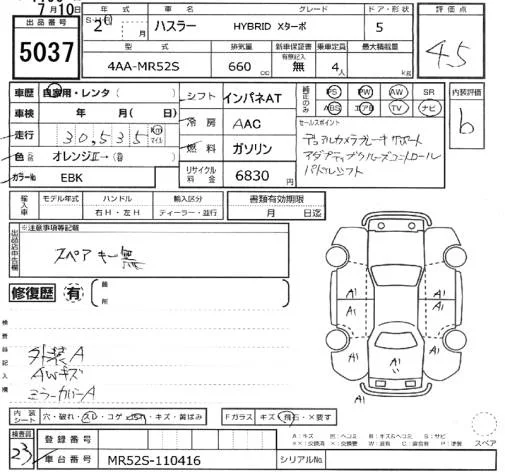 7月10日
出品番号
5037
年式
車名
グレード
ドア・形状
2
月
ハスラー
HYBRID Xターボ
5
型式
排気量
新車保証書
乗車定員
最大積載量
有無記入
4AA-MR52S
660
cc
無
4
人
kg
評価点
4.5
車歴
自家用・レンタ（
）
車検
年
月（
日）
走行
30,535
Km
マイル
色
オレンジⅡ→（
）
カラーNo
EBK
シフト
インパネAT
冷房
AAC
燃料
ガソリン
リサイクル料金
6830
円
純正のみ
PS
PW
AW
SR
ABS
エアB
TV
ナビ
セールスポイント
デュアルカメラブレーキサポート
アダプティブクルーズコントロール
パドルシフト
内装評価
b
輸入車
モデル年式
ハンドル
輸入区分
右H・左H
ディーラー・並行
書類有効期限
月
日迄
出品店申告欄
※注意事項等記載
スペアキー無
修復歴
有
箇所
検査員記入欄
外装A
AWキズ
ミラーカバーA
A1
A1
A1
A1
A1
A1
A1
内装
シート
穴・破れ・スレ・コゲ
キズ・黄ばみ
Fガラス
キズ・飛石・×要す
A：キズ
スペア
検査員
23
登録番号
車台番号
MR52S-110416
シリアルNo.